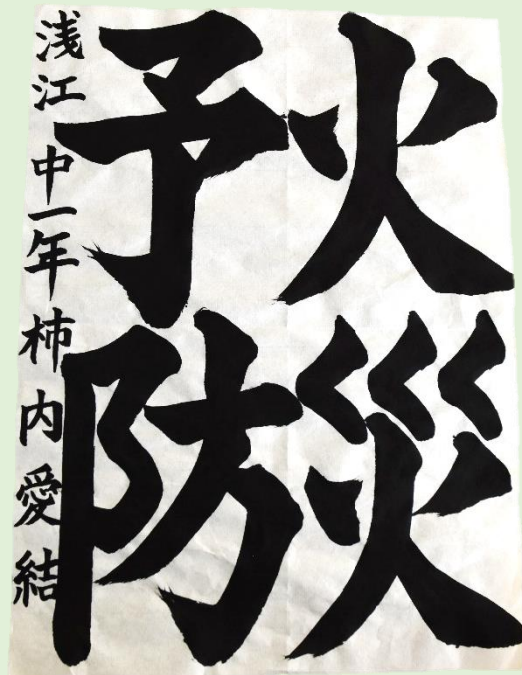 火災
予防
浅江 中一年 柿内愛結